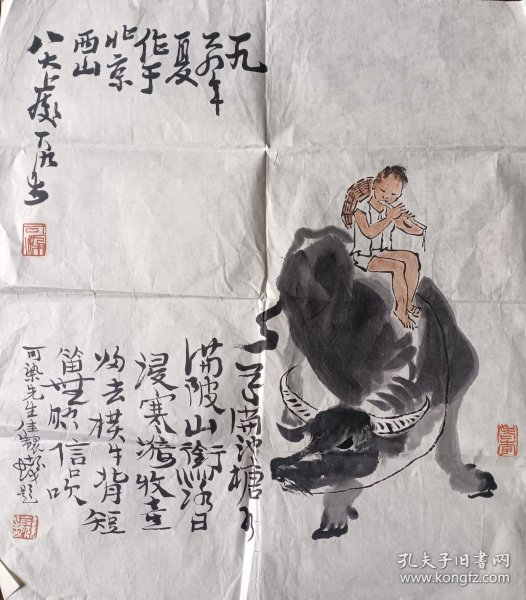 一九
年
夏
作于
北京
西山
八大處
草满池塘水
满陂山衔落日
浸寒漪牧童
归去横牛背短
笛無腔信吹
可染先生佳製
題
孔夫子旧书网
www.kongfz.com